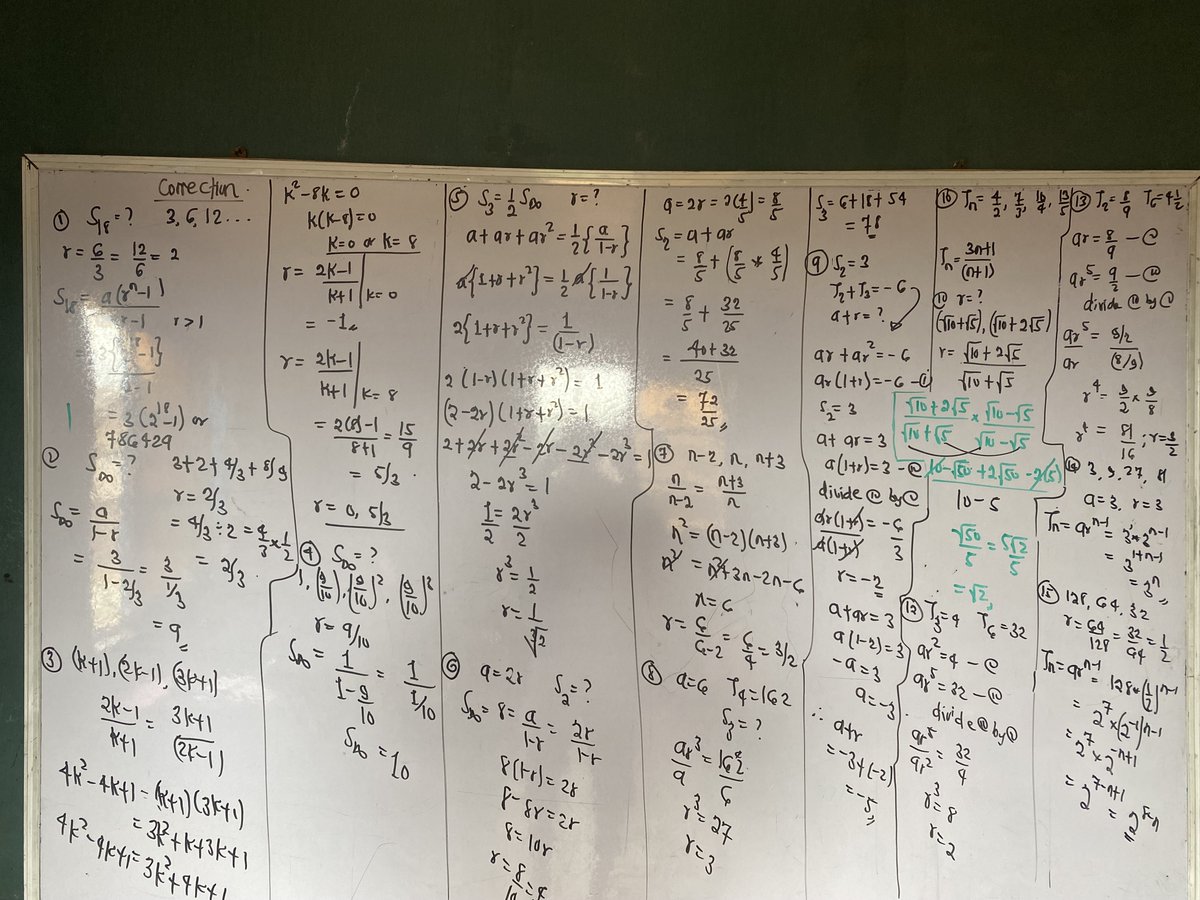 Correction.
① S₁₈ = ? 3, 6, 12 ...
r = 6/3 = 12/6 = 2
S₁₈ = a(rⁿ-1)/r-1 r>1
= 3(2¹⁸-1) or
786429
② S∞ = ? 3+2+4/3+8/9
r = 2/3
S∞ = a/1-r = 4/3 ÷ 2 = 4/3 × 1/2
= 3/1-2/3 = 3/1/3 = 2/3.
= 9
③ (k+1), (2k-1), (3k+1)
2k-1/k+1 = 3k+1/(2k-1)
4k²-4k+1 = (k+1)(3k+1)
= 3k²+k+3k+1
4k²-4k+1 = 3k²+4k+1
k²-8k=0
k(k-8)=0
k=0 or k=8
r = 2k-1/k+1 | k=0
= -1
r = 2k-1/k+1 | k=8
= 2(8)-1/8+1 = 15/9
= 5/3.
r = 0, 5/3
④ S∞ = ?
1, (9/10), (9/10)², (9/10)³
r = 9/10
S∞ = 1/1-9/10 = 1/1/10
S∞ = 10
⑤ S₃ = ½ S∞ r = ?
a+ar+ar² = ½{a/1-r}
a{1+r+r²} = ½ a{1/1-r}
2{1+r+r²} = 1/(1-r)
2(1-r)(1+r+r²) = 1
(2-2r)(1+r+r²) = 1
2+2r+2r²-2r-2r²-2r³=1
2-2r³=1
1/2 = 2r³/2
r³ = 1/2
r = 1/∛2
⑥ a=2r S₂=?
S∞ = 8 = a/1-r = 2r/1-r
8(1-r)=2r
8-8r=2r
8=10r
r = 8/10 = 4
a = 2r = 2(4/5) = 8/5
S₂ = a+ar
= 8/5 + (8/5 * 4/5)
= 8/5 + 32/25
= 40+32/25
= 72/25
⑦ n-2, n, n+3
n/n-2 = n+3/n
n² = (n-2)(n+3)
n² = n²+3n-2n-6
n=6
r = 6/6-2 = 6/4 = 3/2
⑧ a=6 T₄=162
S₃ = ?
ar³/a = 162/6
r³=27
r=3
S₃ = 6+18+54
= 78
⑨ S₂ = 3
T₂+T₃ = -6
a+r = ?
ar+ar² = -6
ar(1+r) = -6 - ①
S₂=3
a+ar=3
a(1+r)=3 - ②
divide ① by ②
ar(1+r)/a(1+r) = -6/3
r=-2
a+ar=3
a(1-2)=3
-a=3
a=-3
∴ a+r
= -3+(-2)
= -5
⑩ Tₙ = 4/2, 7/3, 10/4, 13/5
Tₙ = 3n+1/(n+1)
⑪ r=?
(√10+√5), (√10+2√5)
r = √10+2√5/√10+√5
√10+2√5/√10+√5 × √10-√5/√10-√5
10-√50+2√50-2(5)
10-5
√50/5 = 5√2/5
= √2
⑫ T₃=4 T₆=32
ar²=4 - ①
ar⁵=32 - ②
divide ② by ①
ar⁵/ar² = 32/4
r³=8
r=2
⑬ T₂=8/9 T₆=4½
ar=8/9 - ①
ar⁵=9/2 - ②
divide ② by ①
ar⁵/ar = 9/2/(8/9)
r⁴ = 9/2 × 9/8
r⁴ = 81/16; r=3/2
⑭ 3, 9, 27, 81
a=3, r=3
Tₙ=arⁿ⁻¹ = 3¹×3ⁿ⁻¹
= 3¹⁺ⁿ⁻¹
= 3ⁿ
⑮ 128, 64, 32
r = 64/128 = 32/64 = 1/2
Tₙ=arⁿ⁻¹ = 128*(½)ⁿ⁻¹
= 2⁷×(2⁻¹)ⁿ⁻¹
= 2⁷×2⁻ⁿ⁺¹
= 2⁷⁻ⁿ⁺¹
= 2⁸⁻ⁿ